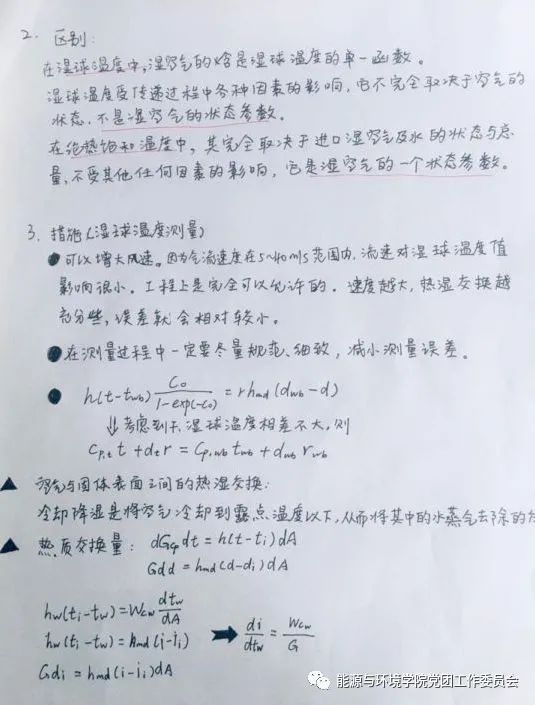 2. 区别:
在湿球温度中,湿空气的焓是湿球温度的单一函数。
湿球温度受传递过程中各种因素的影响,它不完全取决于空气的
状态,不是湿空气的状态参数。
在绝热饱和温度中,其完全取决于进口湿空气及水的状态与总
量,不受其他任何因素的影响,它是湿空气的一个状态参数。
3. 措施(湿球温度测量)
●可以增大风速。因为气流速度在5~40m/s范围内,流速对湿球温度值
影响很小。工程上是完全可以允许的。速度越大,热湿交换越
充分些,误差就会相对较小。
●在测量过程中一定要尽量规范、细致,减小测量误差。
● h(t-t_wb) C₀/(1-exp(-C₀)) = r h_md (d_wb-d)
⇓考虑到干、湿球温度相差不大,则
C_p,t t + d_t r = C_p,wb t_wb + d_wb r_wb
▲ 空气与固体表面之间的热湿交换:
冷却降湿是将空气冷却到露点温度以下,从而将其中的水蒸气去除的方
▲ 热质交换量: dG_cp dt = h(t-t_i)dA
Gdd = h_md(d-d_i)dA
h_w(t_i-t_w)=W_cw dt_w/dA
h_w(t_i-t_w)=h_md(i-i_i) ➡ di/dt_w = W_cw/G
Gdi = h_md(i-i_i)dA
能源与环境学院党团工作委员会